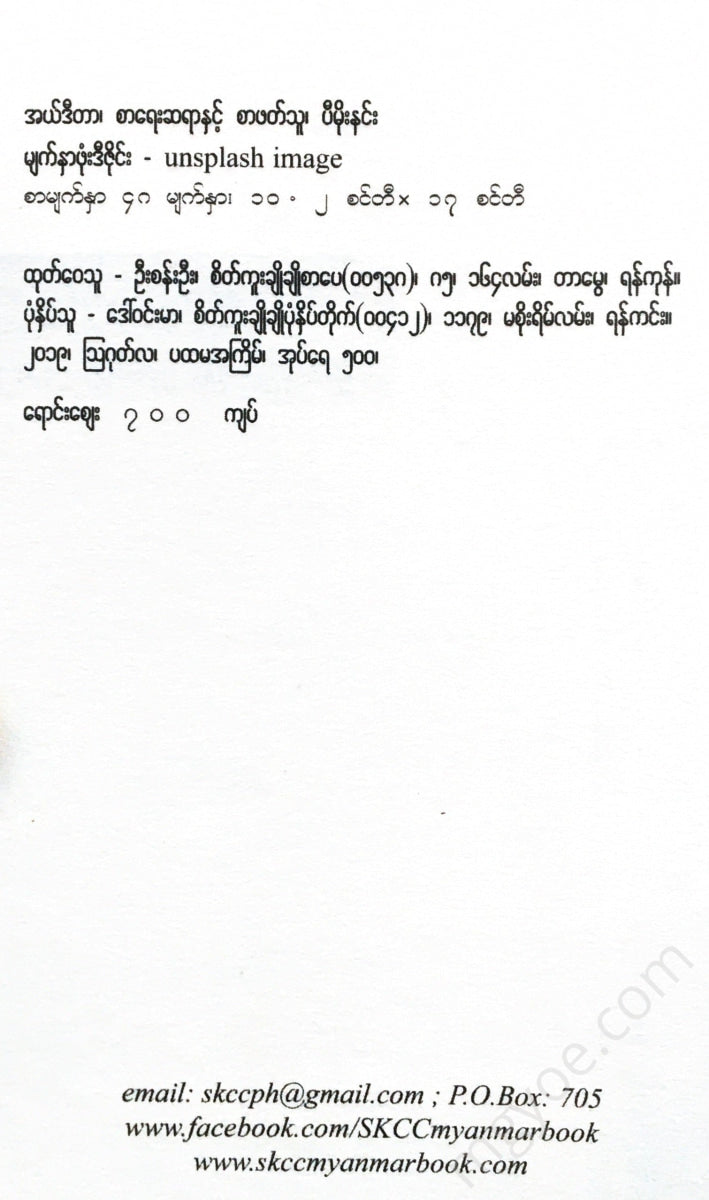 အယ်ဒီတာ၊ စာရေးဆရာနှင့် စာဖတ်သူ၊ ပီမိုးနင်း
မျက်နှာဖုံးဒီဇိုင်း - unsplash image
စာမျက်နှာ ၄၈ မျက်နှာ၊ ၁၀.၂ စင်တီ× ၁၇ စင်တီ
ထုတ်ဝေသူ - ဦးစန်းဦး၊ စိတ်ကူးချိုချိုစာပေ(၀၀၅၃၈)၊ ၈၅၊ ၁၆၄လမ်း၊ တာမွေ၊ ရန်ကုန်။
ပုံနှိပ်သူ - ဒေါ်ဝင်းမာ၊ စိတ်ကူးချိုချိုပုံနှိပ်တိုက်(၀၀၄၁၂)၊ ၁၁၇၉၊ မစိုးရိမ်လမ်း၊ ရန်ကင်း။
၂၀၁၉၊ ဩဂုတ်လ၊ ပထမအကြိမ်၊ အုပ်ရေ ၅၀၀၊
ရောင်းဈေး ၇ ၀ ၀ ကျပ်
mgyoe.com
email: skccph@gmail.com ; P.O.Box: 705
www.facebook.com/SKCCmyanmarbook
www.skccmyanmarbook.com